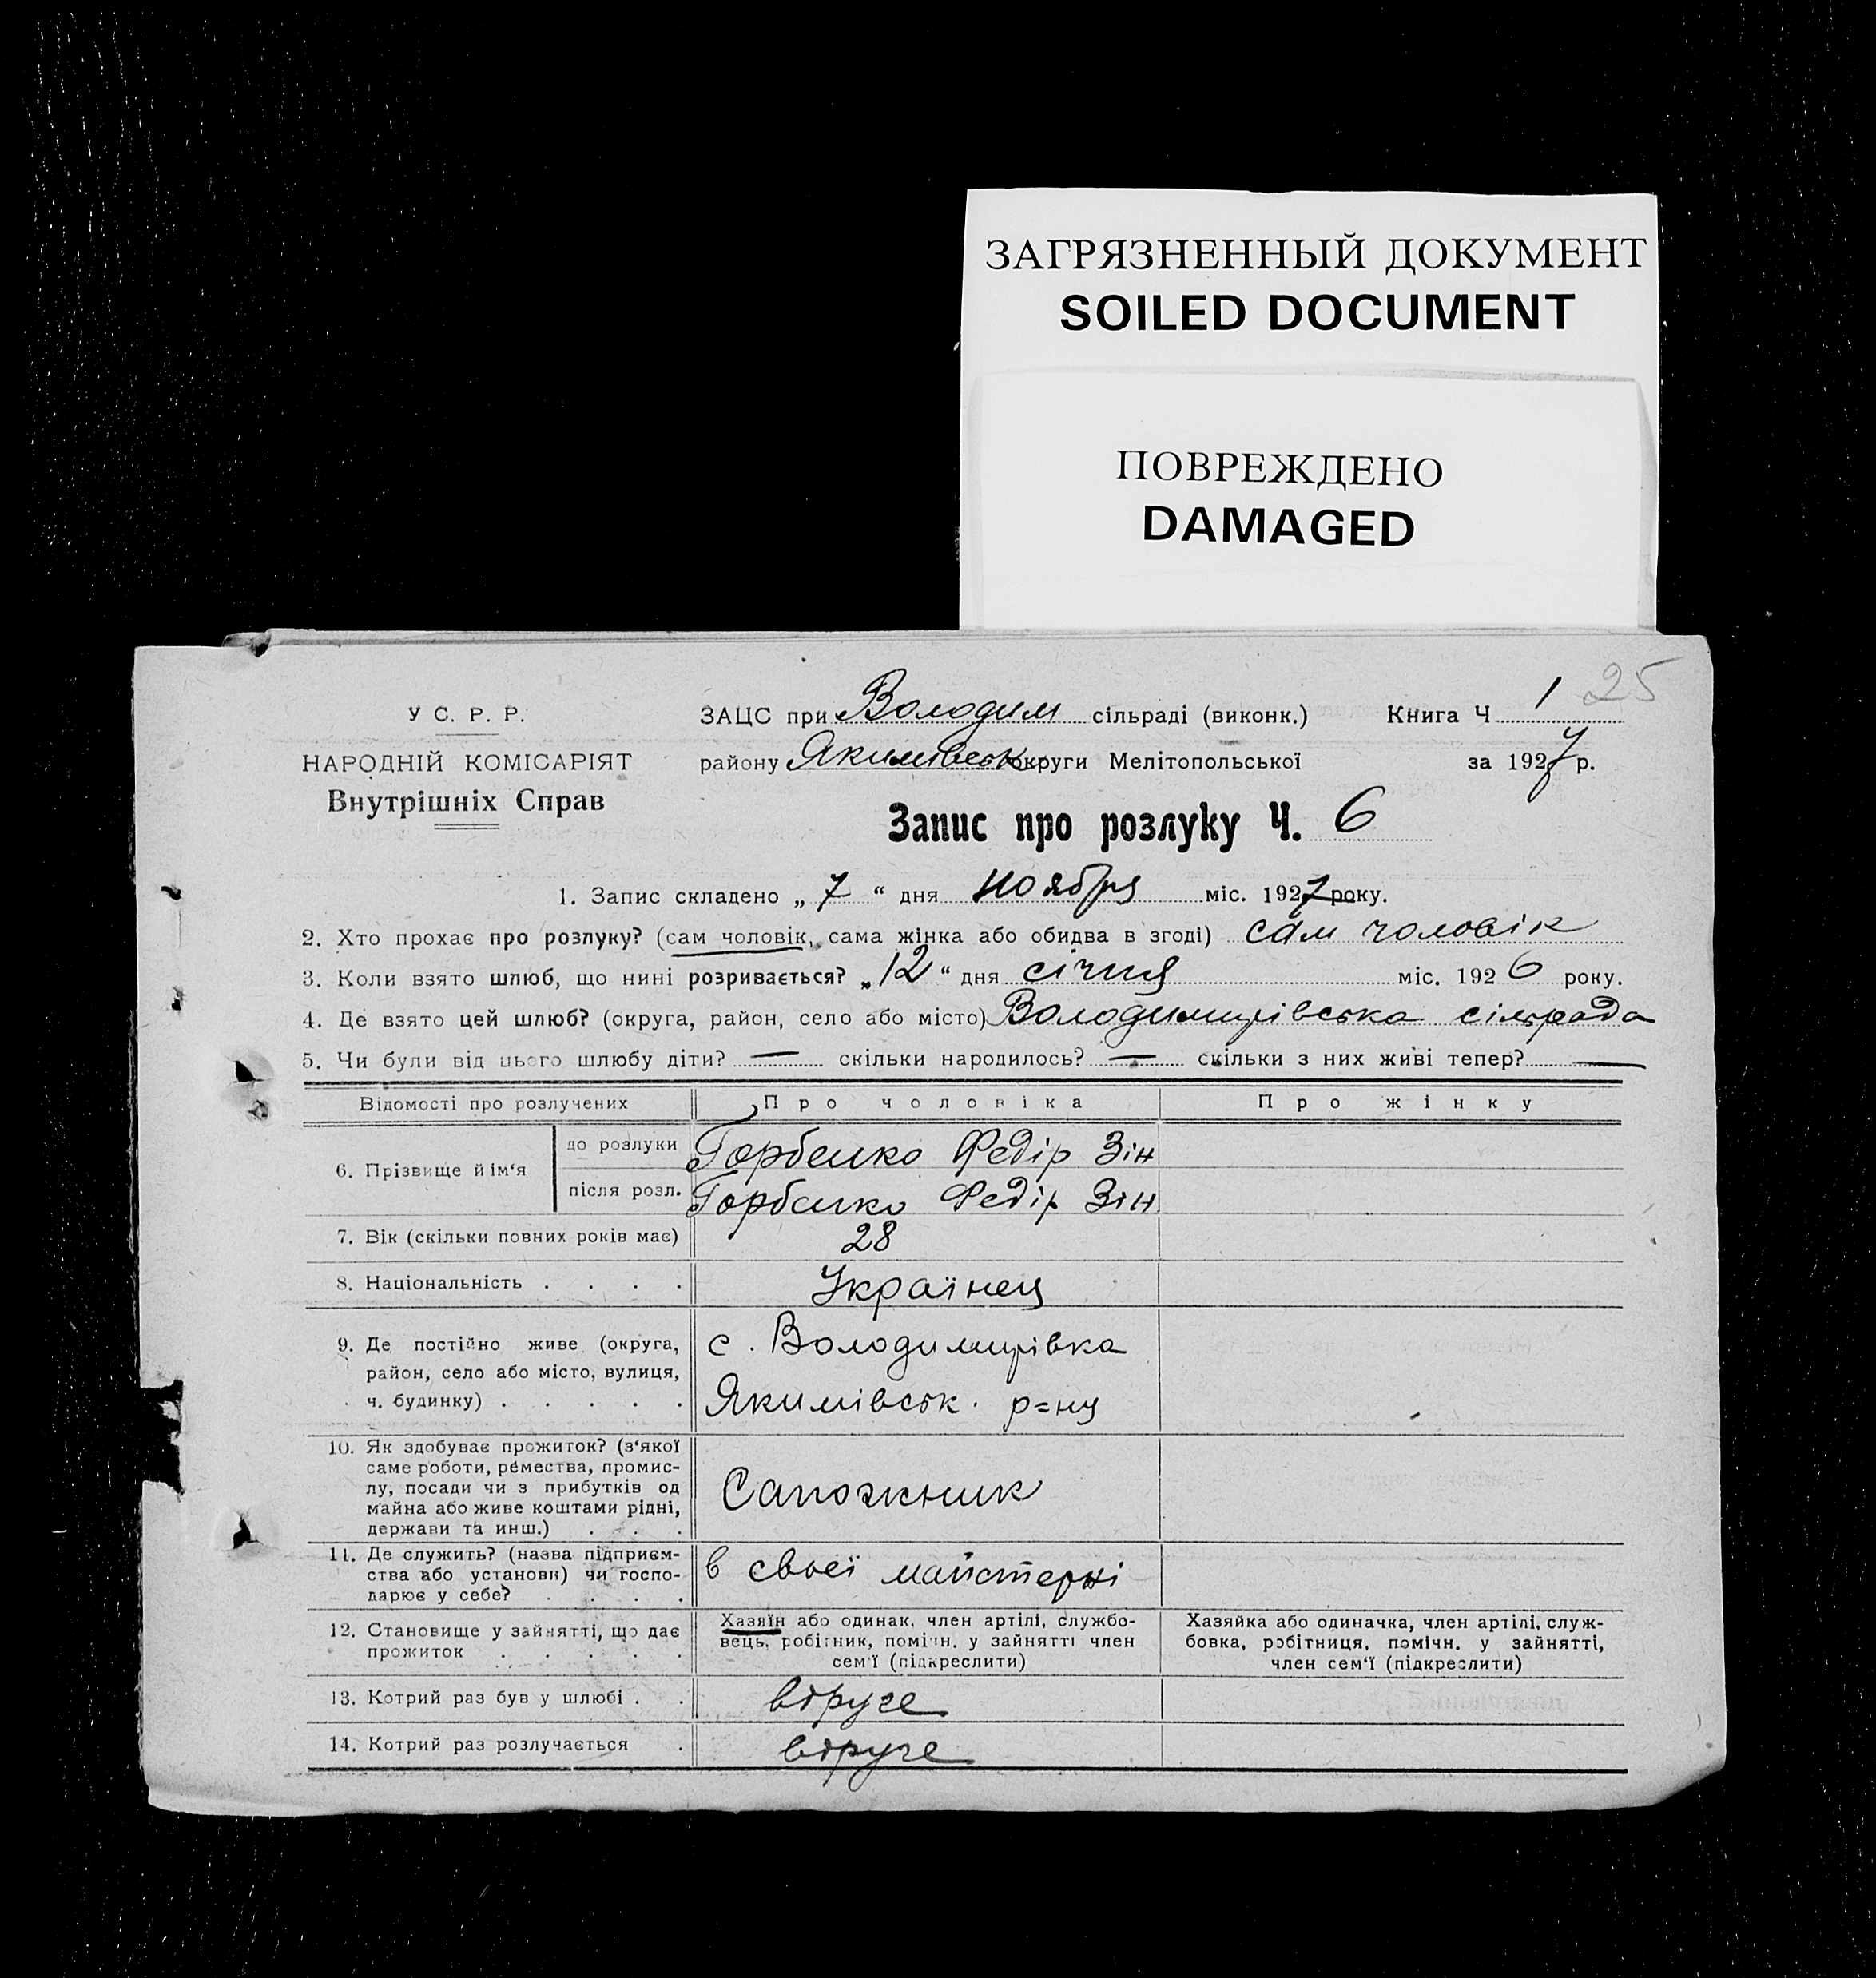 ЗАГРЯЗНЕННЫЙ ДОКУМЕНТ
SOILED DOCUMENT
ПОВРЕЖДЕНО
DAMAGED
25
У С. Р. Р.
НАРОДНІЙ КОМІСАРІЯТ
Внутрішніх Справ
ЗАЦС при Володим сільраді (виконк.) Книга Ч 1
району Якимівськ округи Мелітопольської за 1927 р.
Запис про розлуку Ч. 6
1. Запис складено „ 7 “ дня ноября міс. 1927 року.
2. Хто прохає про розлуку? (сам чоловік, сама жінка або обидва в згоді) сам чоловік
3. Коли взято шлюб, що нині розривається? „ 12 “ дня січня міс. 1926 року.
4. Де взято цей шлюб? (округа, район, село або місто) Володимирівська сільрада
5. Чи були від цього шлюбу діти? — скільки народилось? — скільки з них живі тепер? —
Відомості про розлучених Про чоловіка Про жінку
6. Прізвище й ім‘я до розлуки Горбенко Федір Зін
після розл. Горбенко Федір Зін
7. Вік (скільки повних років має) 28
8. Національність . . . . Українец
9. Де постійно живе (округа, с. Володимирівка
район, село або місто, вулиця,
ч. будинку) . . . . . Якимівськ. р=ну
10. Як здобуває прожиток? (з‘якої
саме роботи, ремества, промис-
лу, посади чи з прибутків од Сапожник
майна або живе коштами рідні,
держави та инш.) . . .
11. Де служить? (назва підприєм- в своєї майстерні
ства або установи) чи госпо-
дарює у себе? . . . .
12. Становище у зайнятті, що дає
прожиток . . . . .
Хазяїн або одинак, член артілі, службо-
вець, робітник, помічн. у зайнятті член
сем‘ї (підкреслити)
Хазяйка або одиначка, член артілі, служ-
бовка, робітниця, помічн. у зайнятті,
член сем‘ї (підкреслити)
13. Котрий раз був у шлюбі . . вдруге
14. Котрий раз розлучається . вдруге